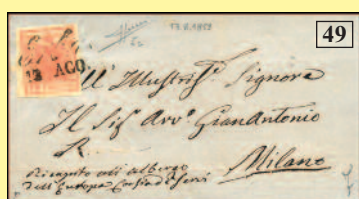 49
13 AGO.
All' Illustris.º Signore
Il Sig Avv.º GianAntonio
R
Milano
Ricapito all' albergo
dell' Europa Corsia de Servi